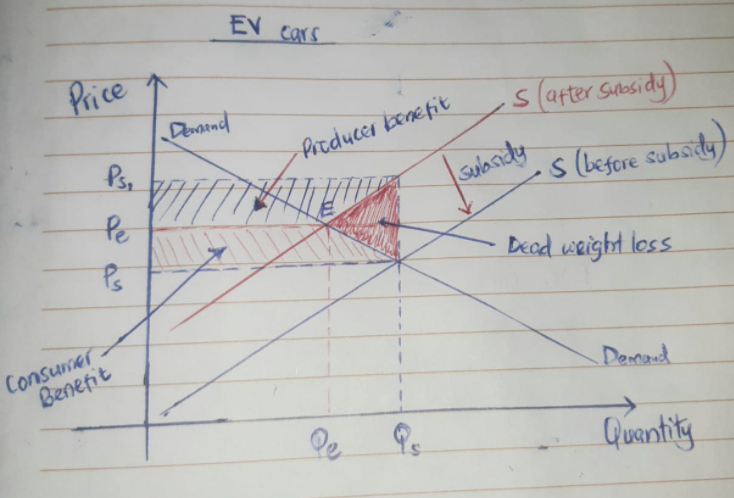 EV cars
Price
Demand
Producer benefit
S (after subsidy)
subsidy
S (before subsidy)
Ps₁
Pe
E
Ps
Dead weight loss
Consumer
Benefit
Demand
Qe
Qs
Quantity